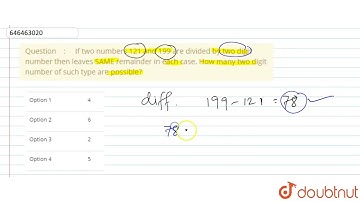 646463020
Question : If two numbers 121 and 199 are divided by two digit
number then leaves SAME remainder in each case. How many two digit
number of such type are possible?
Option 1 4
Option 2 6
Option 3 2
Option 4 5
diff. 199 - 121 = 78
78
doubtnut